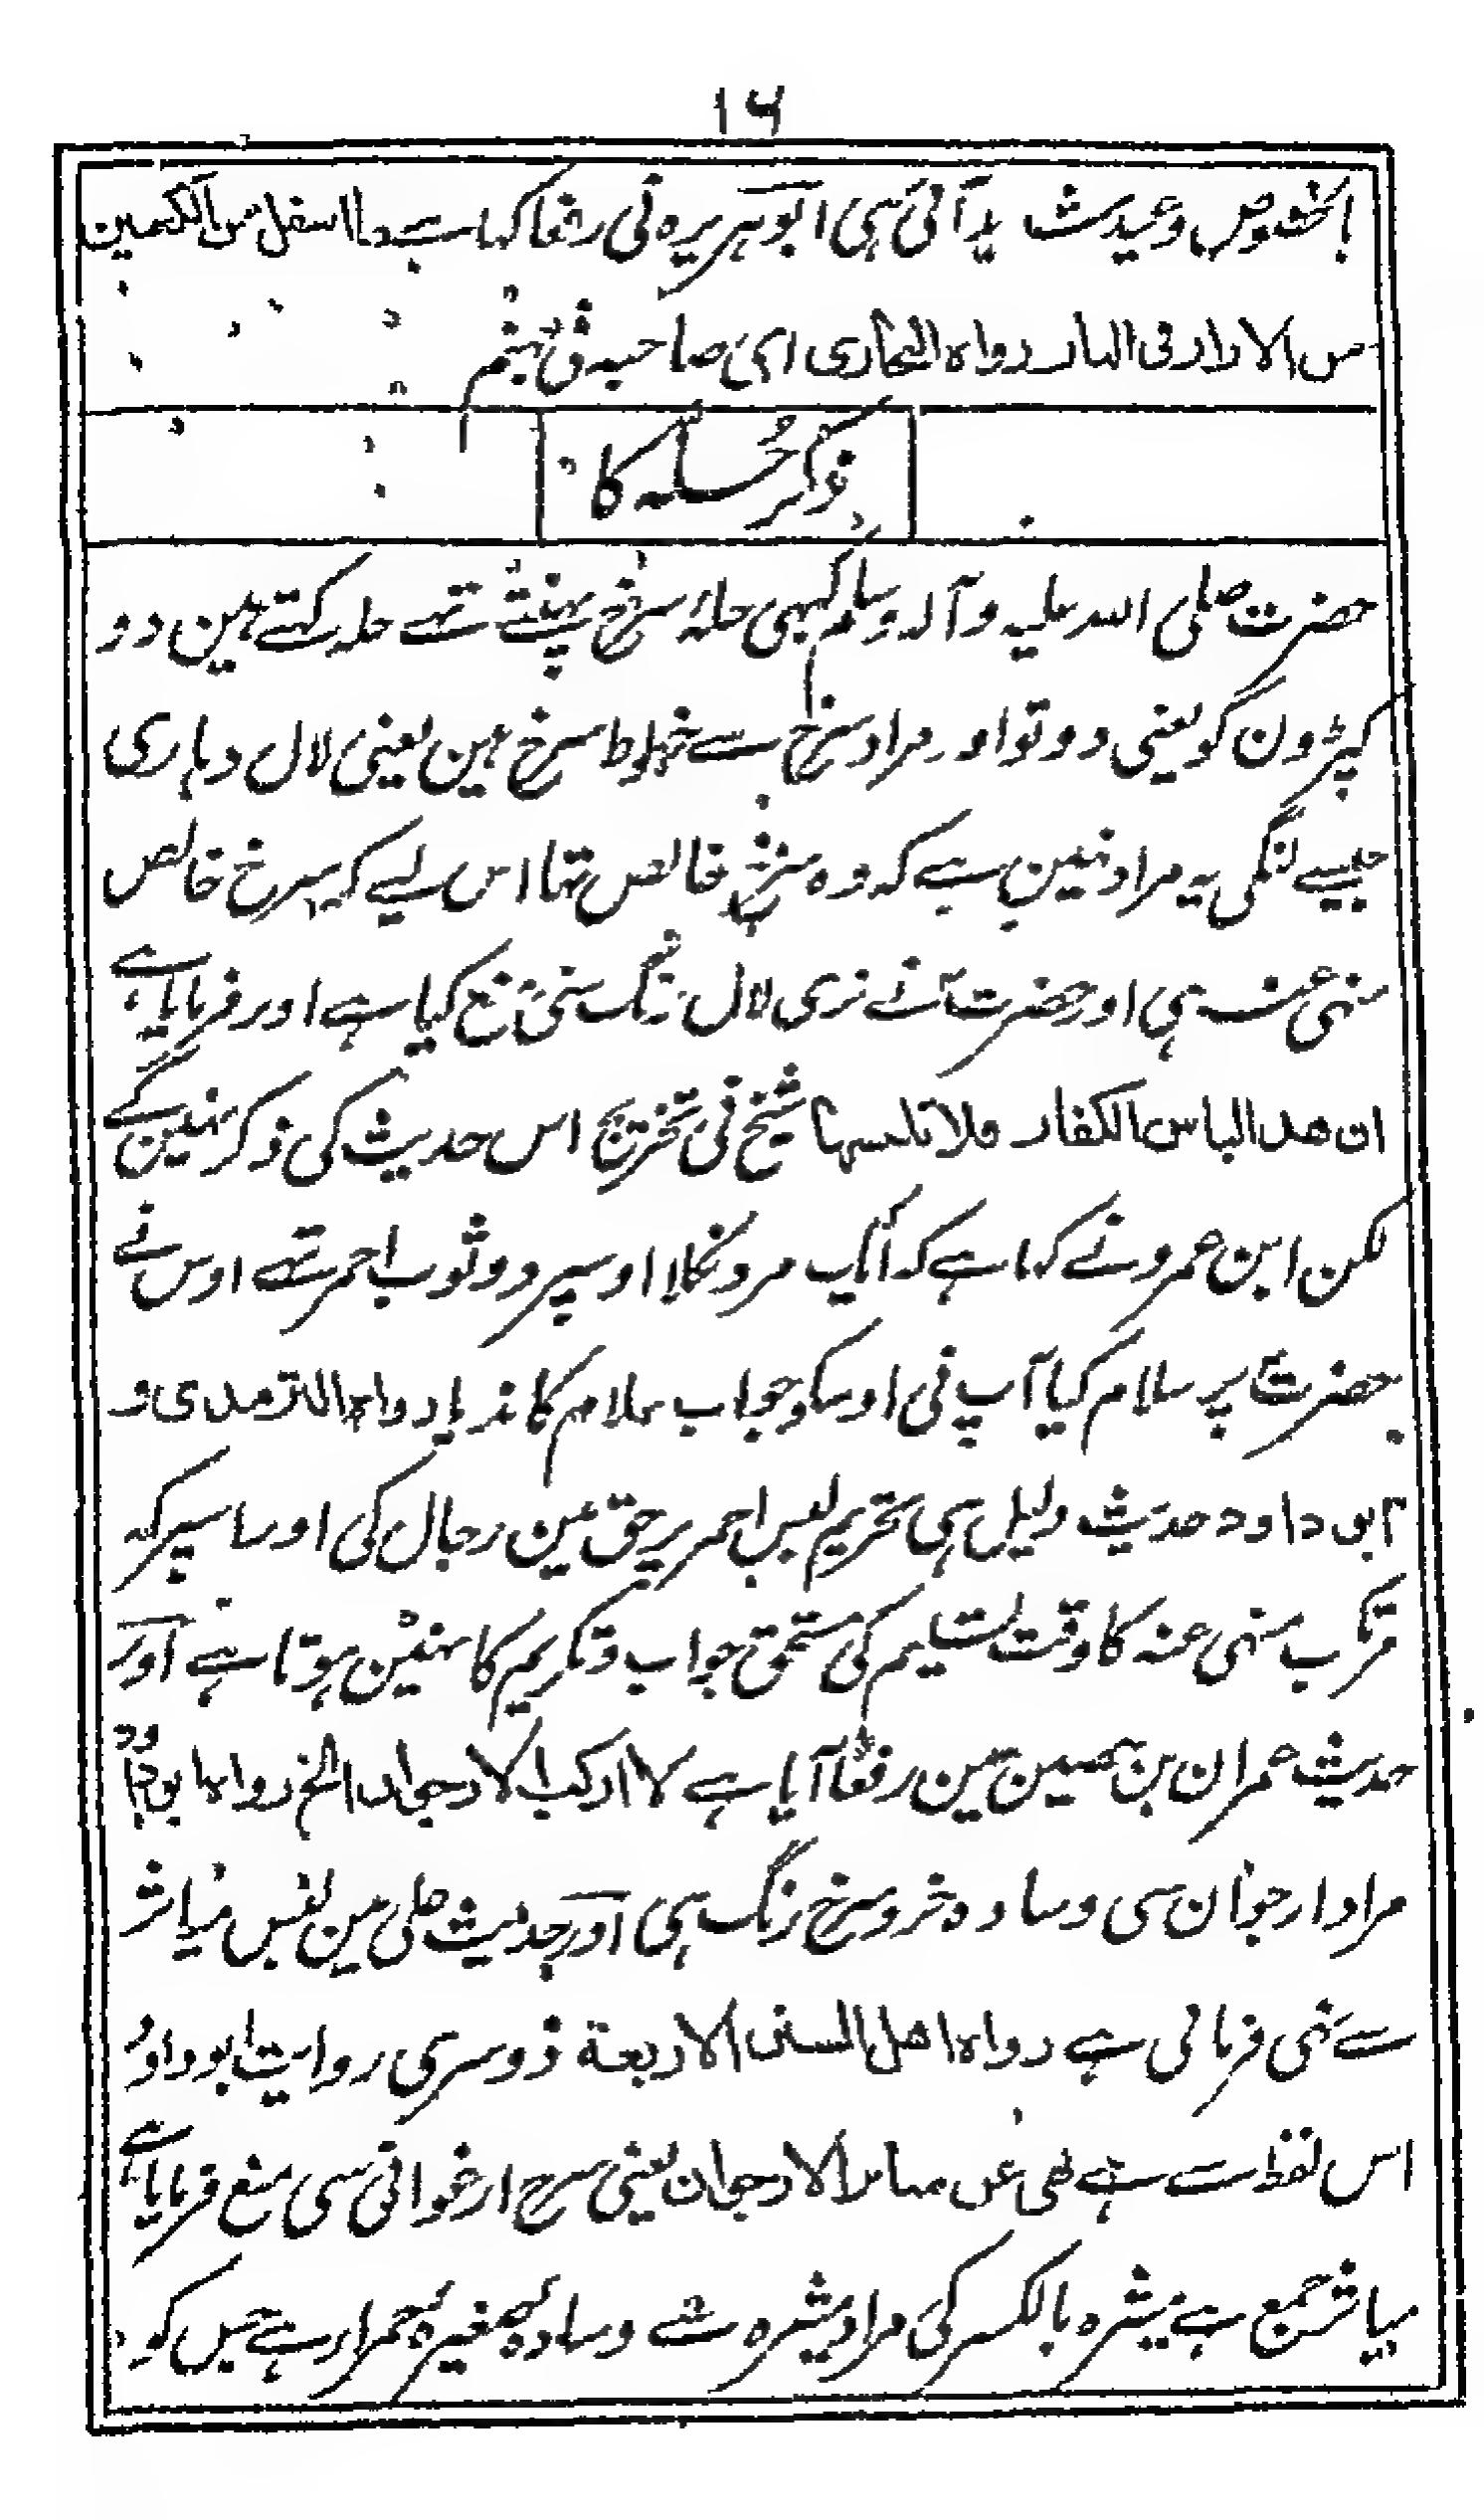 ۱۶
بالخصوص وعید شدید آئی ہی ابوہریرہ نی رفعا کہا ہے ما اسفل من الکعبین
من الازار فی النار رواہ البخاری ای صاحبہ فی جہنم
ذکر حُلہ کا
حضرت صلی اللہ علیہ وآلہ وسلم کبھی حلۂ سرخ پہنتے تھے حلہ کہتے ہین دو
کپڑون کو یعنی دو تو اور مراد سرخ سے خطوط سرخ ہین یعنی لال دہاری
جیسے لنگی یہ مراد نہین ہے کہ وہ سرخ خالص تہا اس لیے کہ سرخ خالص
منہی عنہ ہی اور حضرت نے نری لال رنگ سی منع کیا ہے اور فرمایا ہے
ان ھذا لباس الکفار فلا تلبسہا شیخ نی تخریج اس حدیث کی ذکر نہین کے
لکن ابن عمرو نے کہا ہے کہ ایک مرد نکلا اوسپر دو ثوب احمر تھے اوس نے
حضرت پر سلام کیا آپ نی اوسکو جواب سلام کا ندیا رواہ الترمذی و
ابو داود حدیث دلیل ہی تحریم لبس احمر پر حق مین رجال کی اور اسپر کہ
مرتکب منہی عنہ کا وقت تسلیم کی مستحق جواب و تکریم کا نہین ہوتا ہے اور
حدیث عمران بن حصین مین رفعًا آیا ہے لا ارکب الارجوان الخ رواہ ابو داود
مراد ارجوان سی وسادہ خرد سرخ رنگ ہی اور حدیث علی مین لبس میاثر
سے نہی فرمائی ہے رواہ اھل السنن الاربعة دوسری روایت ابو داود
اس لفظ سے ہے نھی عن میاثر الارجوان یعنی سرج ارغوانی سی منع فرمایا ہے
میاثر جمع ہے میثرہ بالکسر کی مراد میثرہ سے وسادہ صغیرہ حمرا ہے جس کو